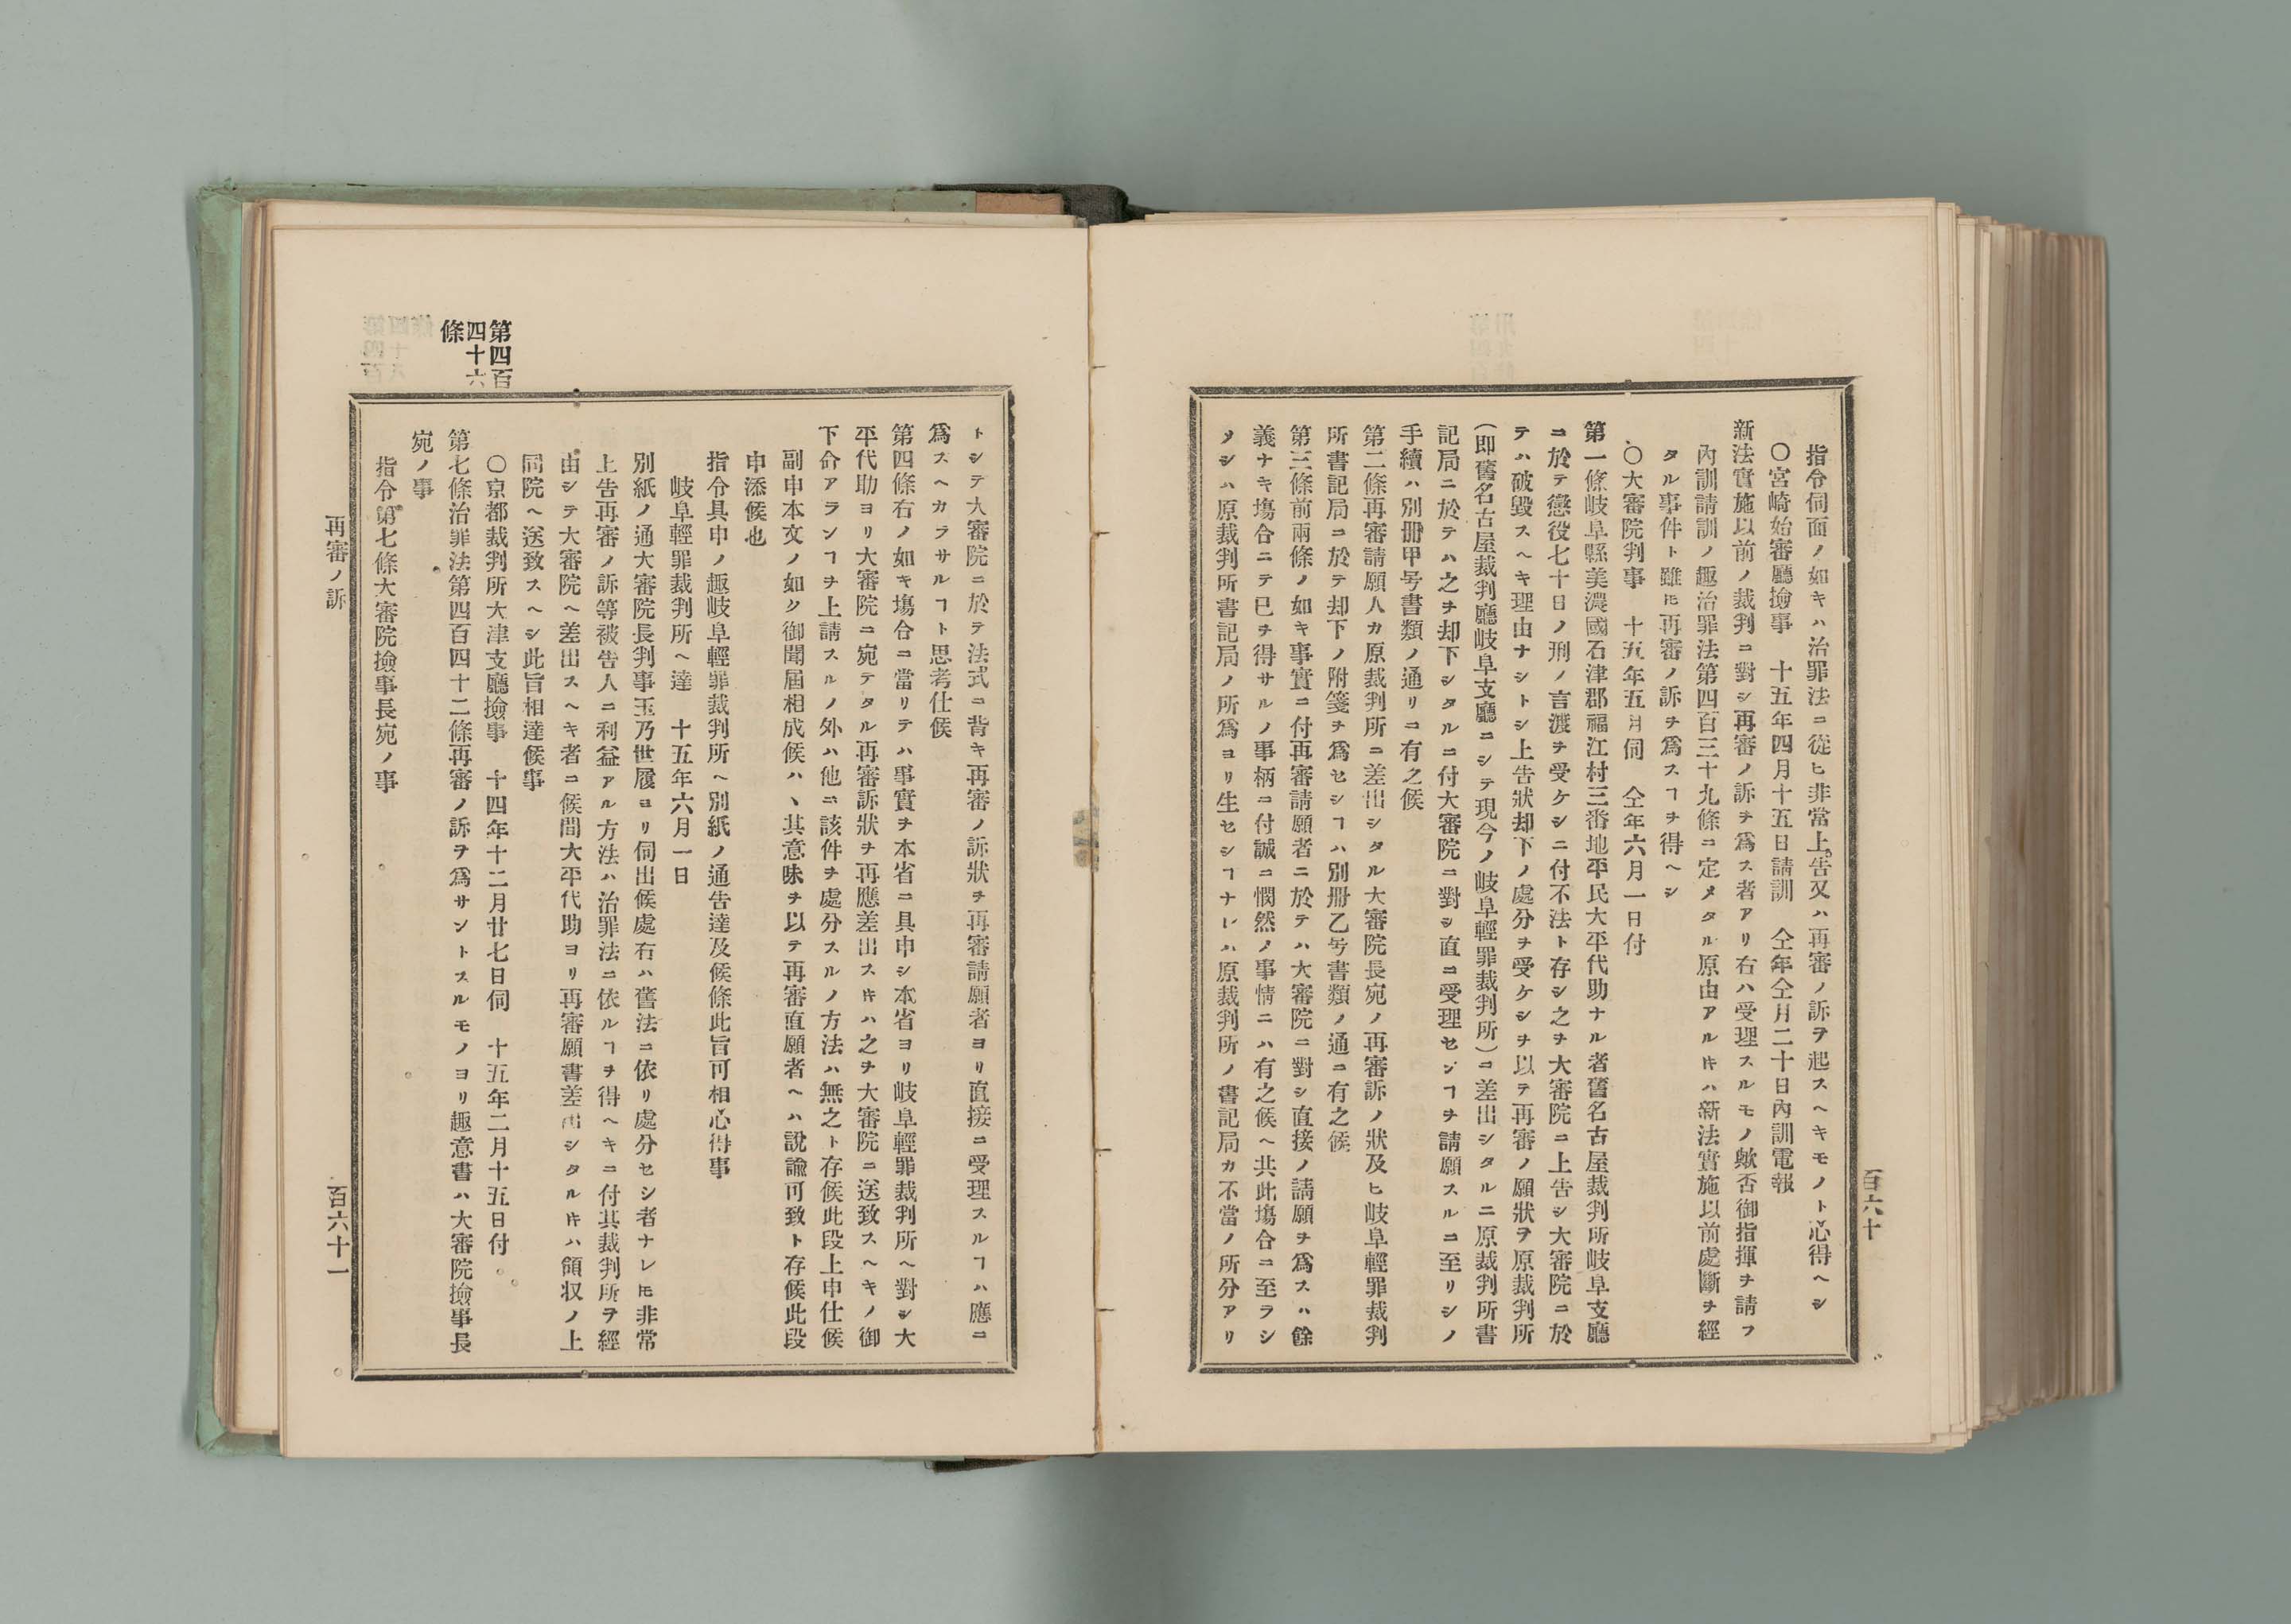 指令伺面ノ如キハ治罪法ニ從ヒ非常上告又ハ再審ノ訴ヲ起スヘキモノト心得ヘシ
〇宮崎始審廳撿事　十五年四月十五日請訓　仝年仝月二十日內訓電報
新法實施以前ノ裁判ニ對シ再審ノ訴ヲ爲ス者アリ右ハ受理スルモノ歟否御指揮ヲ請フ
內訓請訓ノ趣治罪法第四百三十九條ニ定メタル原由アルキハ新法實施以前處斷ヲ經
タル事件ト雖ㇳモ再審ノ訴ヲ爲スヿヲ得ヘシ
〇大審院判事　十五年五月伺　仝年六月一日付
第一條岐阜縣美濃國石津郡福江村三番地平民大平代助ナル者舊名古屋裁判所岐阜支廳
ニ於テ懲役七十日ノ刑ノ言渡ヲ受ケシニ付不法ト存シ之ヲ大審院ニ上告シ大審院ニ於
テハ破毀スヘキ理由ナシトシ上告狀却下ノ處分ヲ受ケシヲ以テ再審ノ願狀ヲ原裁判所
(即舊名古屋裁判廳岐阜支廳ニシテ現今ノ岐阜輕罪裁判所)ニ差出シタルニ原裁判所書
記局ニ於テハ之ヲ却下シタルニ付大審院ニ對シ直ニ受理セシヿヲ請願スルニ至リシノ
手續ハ別冊甲号書類ノ通リニ有之候
第二條再審請願人カ原裁判所ニ差出シタル大審院長宛ノ再審訴ノ狀及ヒ岐阜輕罪裁判
所書記局ニ於テ却下ノ附箋ヲ爲セシヿハ別冊乙号書類ノ通ニ有之候
第三條前兩條ノ如キ事實ニ付再審請願者ニ於テハ大審院ニ對シ直接ノ請願ヲ爲スハ餘
義ナキ塲合ニテ已ヲ得サルノ事柄ニ付誠ニ憫然ノ事情ニハ有之候ヘ共此塲合ニ至ラシ
メシハ原裁判所書記局ノ所爲ヨリ生セシヿナレハ原裁判所ノ書記局カ不當ノ所分アリ
百六十
トシテ大審院ニ於テ法式ニ背キ再審ノ訴狀ヲ再審請願者ヨリ直接ニ受理スルヿハ應ニ
爲スヘカラサルヿト思考仕候
第四條右ノ如キ塲合ニ當リテハ事實ヲ本省ニ具申シ本省ヨリ岐阜輕罪裁判所ヘ對シ大
平代助ヨリ大審院ニ宛テタル再審訴狀ヲ再應差出スキハ之ヲ大審院ニ送致スヘキノ御
下命アランヿヲ上請スルノ外ハ他ニ該件ヲ處分スルノ方法ハ無之ト存候此段上申仕候
副申本文ノ如ク御聞屆相成候ハヽ其意味ヲ以テ再審直願者ヘハ說諭可致ト存候此段
申添候也
指令具申ノ趣岐阜輕罪裁判所ヘ別紙ノ通告達及候條此旨可相心得事
岐阜輕罪裁判所ヘ達　十五年六月一日
別紙ノ通大審院長判事玉乃世履ヨリ伺出候處右ハ舊法ニ依リ處分セシ者ナレㇳモ非常
上告再審ノ訴等被告人ニ利益アル方法ハ治罪法ニ依ルヿヲ得ヘキニ付其裁判所ヲ經
由シテ大審院ヘ差出スヘキ者ニ候間大平代助ヨリ再審願書差出シタルキハ領収ノ上
同院ヘ送致スヘシ此旨相達候事
〇京都裁判所大津支廳撿事　十四年十二月廿七日伺　十五年二月十五日付
第四百
四十六
條
第七條治罪法第四百四十二條再審ノ訴ヲ爲サントスルモノヨリ趣意書ハ大審院撿事長
宛ノ事
指令第七條大審院撿事長宛ノ事
再審ノ訴
百六十一